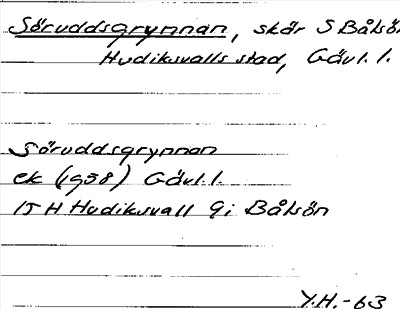 Söruddsgrynnan, skär S Bålsön
Hudiksvalls stad, Gävl. l.
Söruddsgrynnan
ek (1958) Gävl. l.
15 H Hudiksvall 9i Bålsön
Y.H.-63